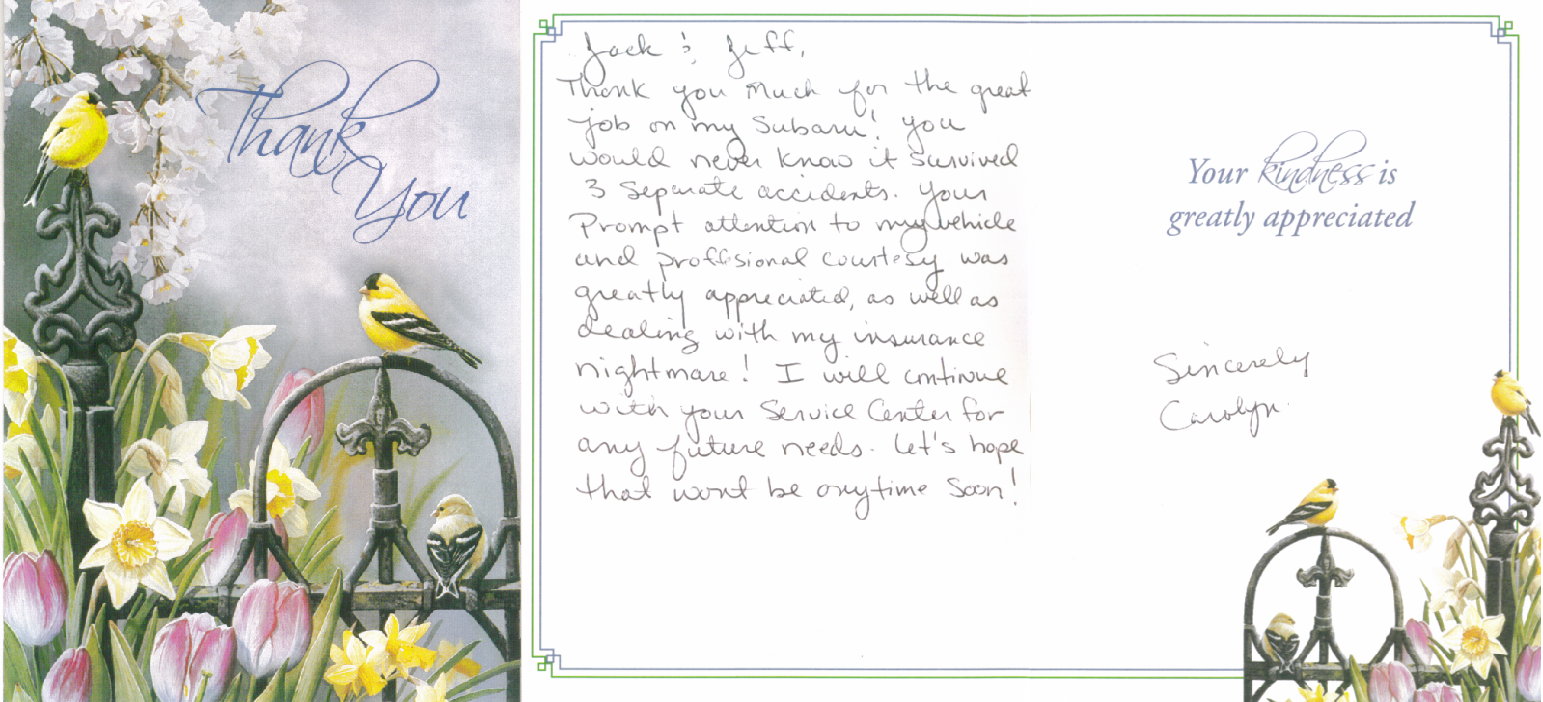 Thank
You
Jack & Jeff,
Thank you much for the great
job on my Subaru! You
would never know it survived
3 separate accidents. Your
Prompt attention to my vehicle
and proffsional courtesy was
greatly appreciated, as well as
dealing with my insurance
nightmare! I will continue
with your Service Center for
any future needs. Let's hope
that wont be anytime soon!
Your kindness is
greatly appreciated
Sincerely
Carolyn